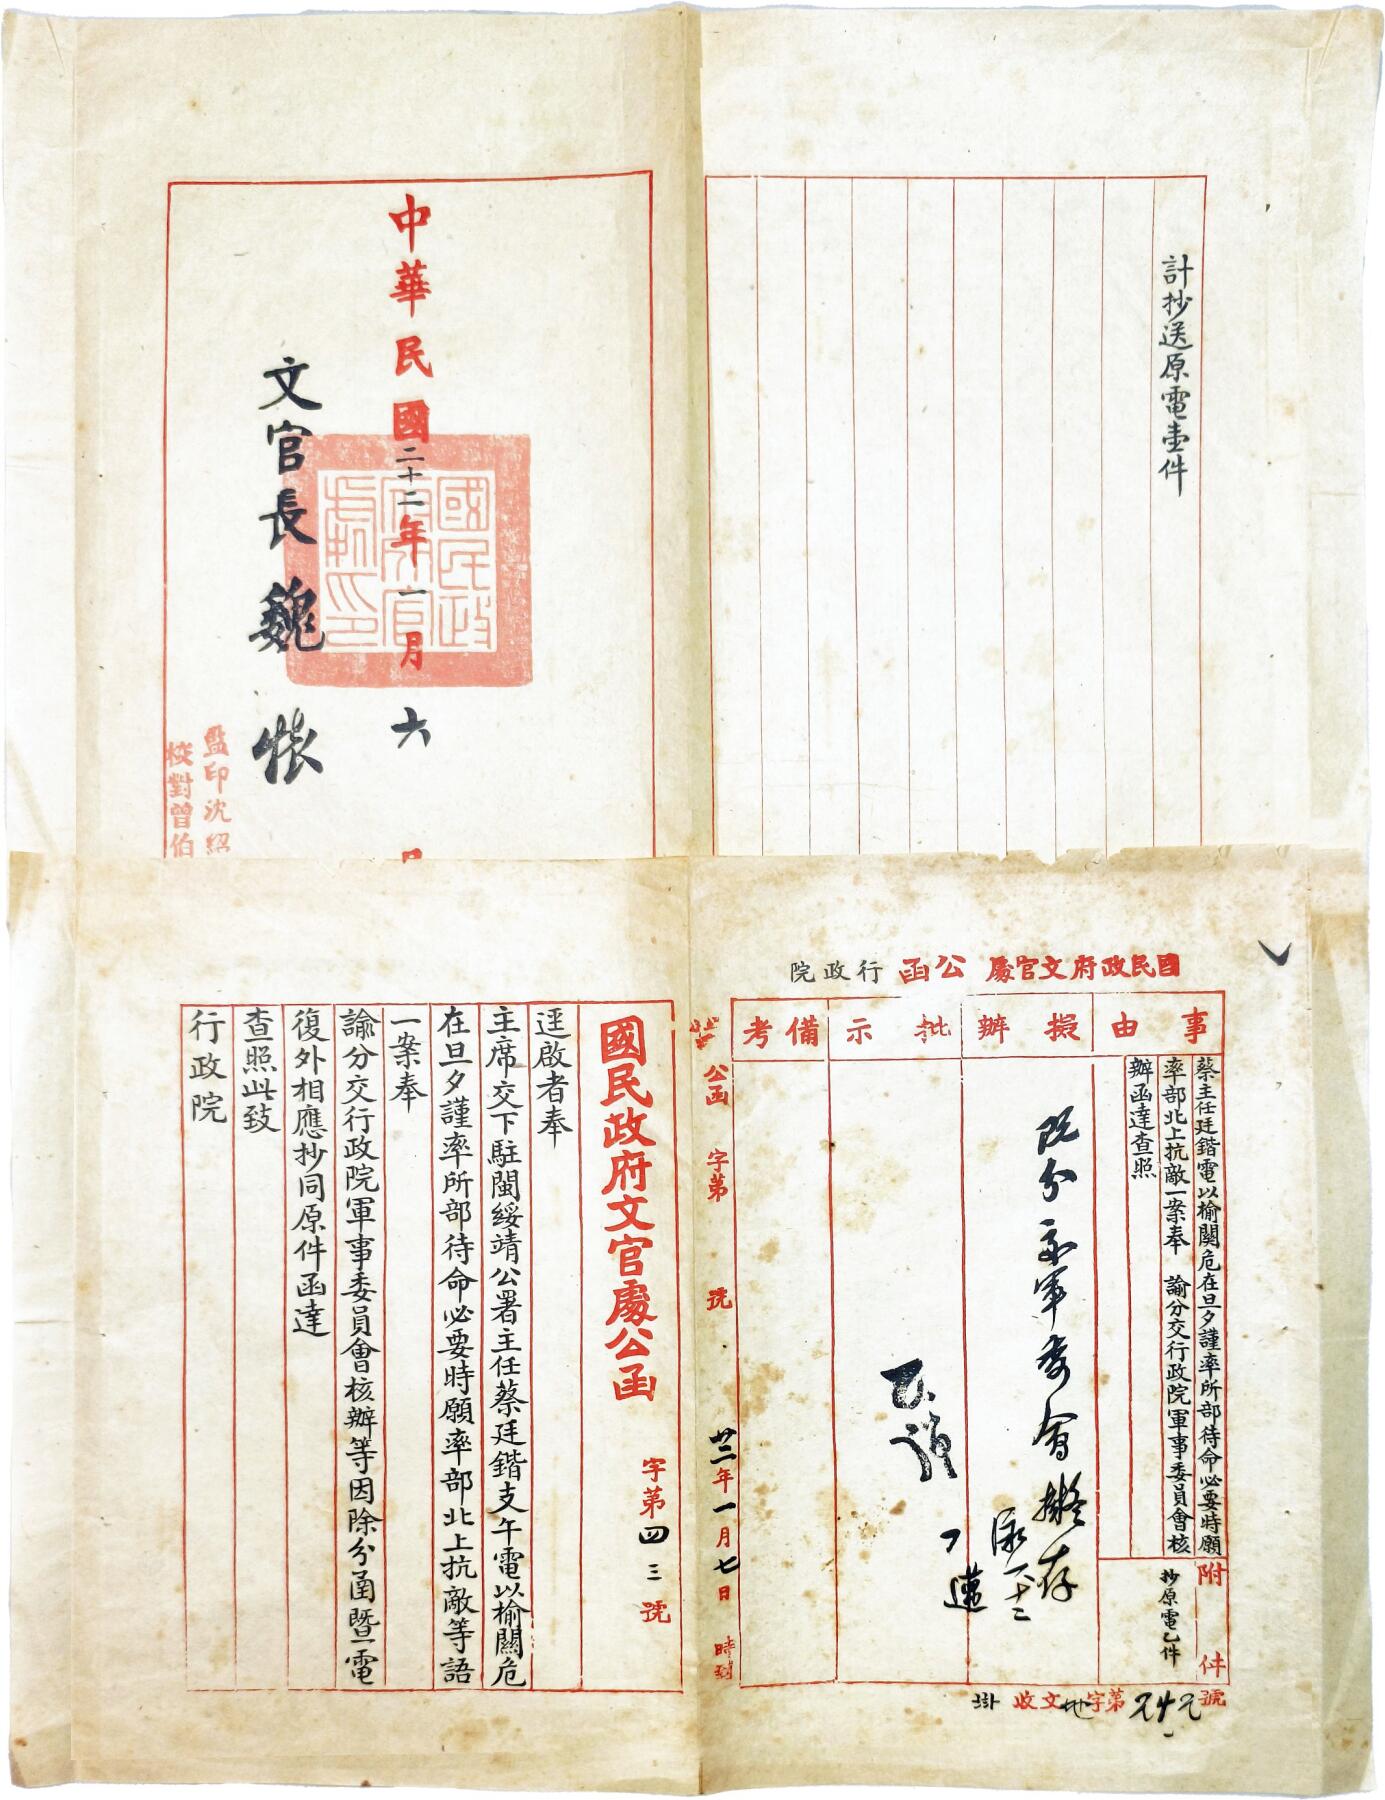 國民政府文官處公函行政院
事由
擬辦
批示
備考
蔡主任廷鍇電以榆關危在旦夕謹率所部待命必要時願
率部北上抗敵一案奉 諭分交行政院軍事委員會核
辦函達查照
附件
抄原電乙件
既分交軍委會擬存
公函 字第 號 廿二年一月七日 時到
收文 字第 號
國民政府文官處公函
字第四三號
逕啟者奉
主席交下駐閩綏靖公署主任蔡廷鍇支午電以榆關危
在旦夕謹率所部待命必要時願率部北上抗敵等語
一案奉
諭分交行政院軍事委員會核辦等因除分函暨電
復外相應抄同原件函達
查照此致
行政院
計抄送原電壹件
中華民國二十二年一月六日
文官長魏懷
國民政府文官處印
監印沈紹
校對曾伯